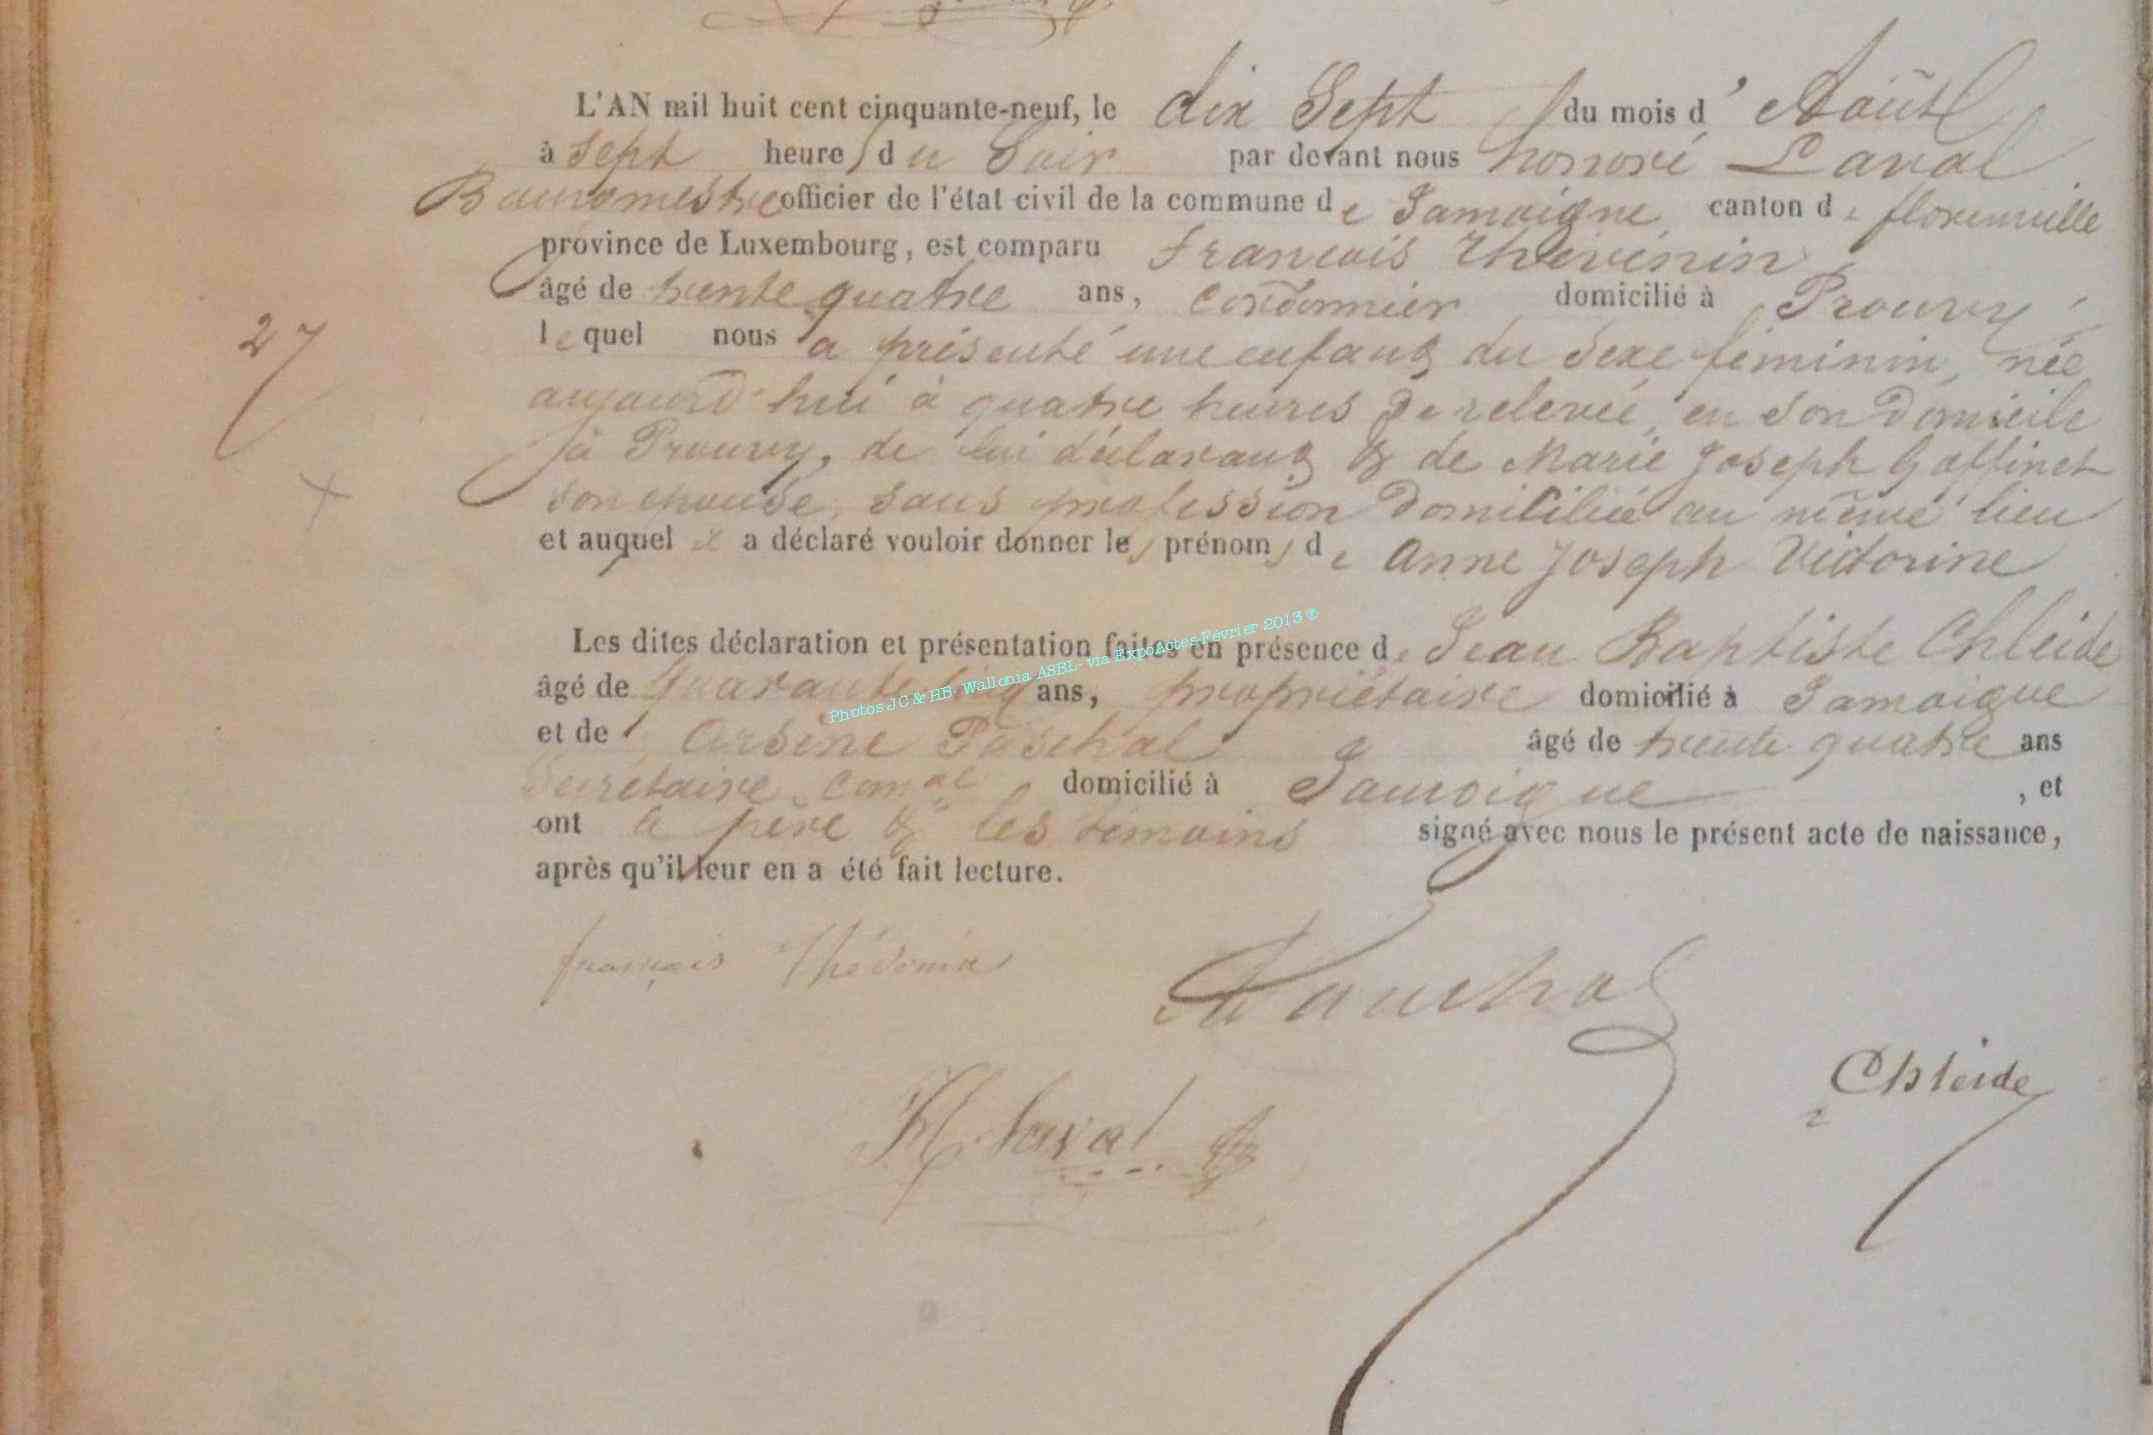 L'AN mil huit cent cinquante-neuf, le dix Sept du mois d'Août
à Sept heures du Soir par devant nous honoré Laval
Bourgmestre officier de l'état civil de la commune de Jamoigne canton de florenville
province de Luxembourg, est comparu François Thévenin
âgé de trente quatre ans, Cordonnier domicilié à Prouvy
lequel nous a présenté une enfant du Sexe féminin, née
aujourd'hui à quatre heures de relevée, en son Domicile
à Prouvy, de lui déclarant & de Marie Joseph Goffinet
son épouse, sans profession Domiciliée au même lieu
et auquel il a déclaré vouloir donner les prénoms de Anne Joseph Victorine
27
Les dites déclaration et présentation faites en présence de Jean Baptiste Chleide
âgé de quarante cinq ans, propriétaire domicilié à Jamoigne
et de Arsène Paschal âgé de trente quatre ans
Secrétaire Comal domicilié à Jamoigne, et
ont le père & les témoins signé avec nous le présent acte de naissance,
après qu'il leur en a été fait lecture.
Photos JC & HB- Wallonia ASBL- via ExpoActes-Février 2013 ®
françois Thévenin
Paschal
Chleide
H. Laval